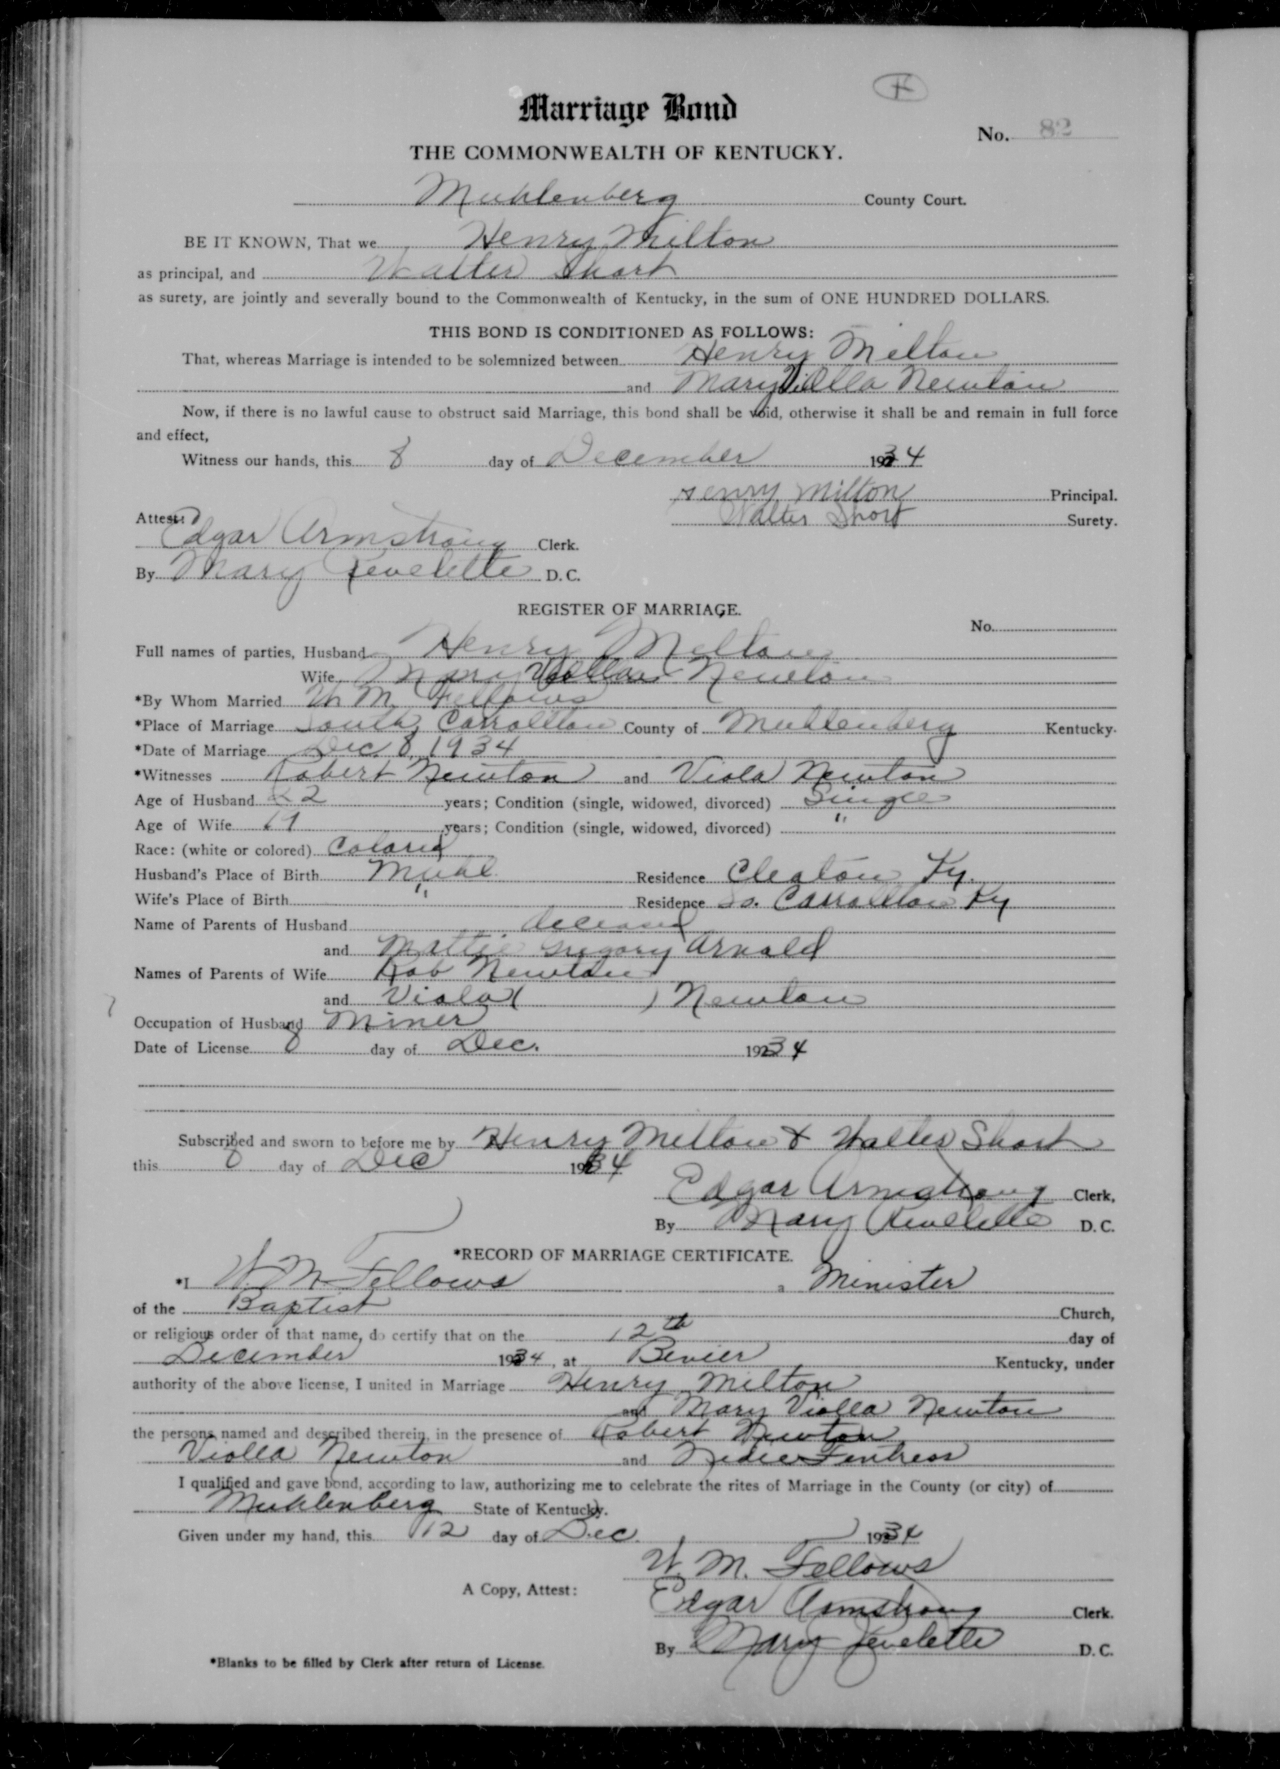 F
Marriage Bond
No. 82
THE COMMONWEALTH OF KENTUCKY.
Muhlenberg County Court.
BE IT KNOWN, That we Henry Milton
as principal, and Walter Short
as surety, are jointly and severally bound to the Commonwealth of Kentucky, in the sum of ONE HUNDRED DOLLARS.
THIS BOND IS CONDITIONED AS FOLLOWS:
That, whereas Marriage is intended to be solemnized between Henry Milton
and Mary Viella Newton
Now, if there is no lawful cause to obstruct said Marriage, this bond shall be void, otherwise it shall be and remain in full force
and effect,
Witness our hands, this 8 day of December 1934
Henry Milton Principal.
Walter Short Surety.
Attest:
Edgar Armstrong Clerk.
By Mary Revelette D. C.
REGISTER OF MARRIAGE.
No.
Full names of parties, Husband Henry Milton
Wife Mary Newton
*By Whom Married W. M. Fellows
*Place of Marriage South Carrollton County of Muhlenberg Kentucky.
*Date of Marriage Dec. 8, 1934
*Witnesses Robert Newton and Viola Newton
Age of Husband 22 years; Condition (single, widowed, divorced) Single
Age of Wife 19 years; Condition (single, widowed, divorced) "
Race: (white or colored) Colored
Husband's Place of Birth Muhl. Residence Cleaton Ky.
Wife's Place of Birth " Residence So. Carrollton Ky
Name of Parents of Husband deceased
and Mattie Gregory Arnold
Names of Parents of Wife Rob Newton
and Viola ( ) Newton
Occupation of Husband Miner
Date of License 8 day of Dec. 1934
Subscribed and sworn to before me by Henry Milton & Walter Short
this 8 day of Dec 1934
Edgar Armstrong Clerk,
By Mary Revelette D. C.
*RECORD OF MARRIAGE CERTIFICATE.
*I W. M. Fellows a Minister
of the Baptist Church,
or religious order of that name, do certify that on the 12th day of
December 1934, at Bevier Kentucky, under
authority of the above license, I united in Marriage Henry Milton
and Mary Viella Newton
the persons named and described therein, in the presence of Robert Newton
Viella Newton and Fentress
I qualified and gave bond, according to law, authorizing me to celebrate the rites of Marriage in the County (or city) of
Muhlenberg State of Kentucky.
Given under my hand, this 12 day of Dec. 1934
W. M. Fellows
A Copy, Attest: Edgar Armstrong Clerk.
By Mary Revelette D. C.
*Blanks to be filled by Clerk after return of License.